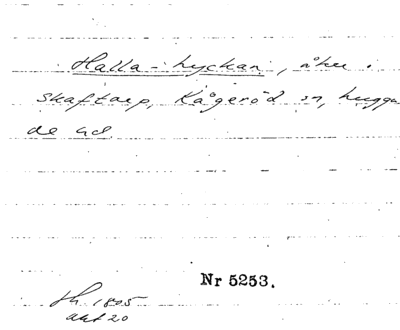 Halla-lyckan, åker.
Skaftarp, Kågeröd sn, Luggu
de hd
Nr 5253.
Lh. 1805
akt 20